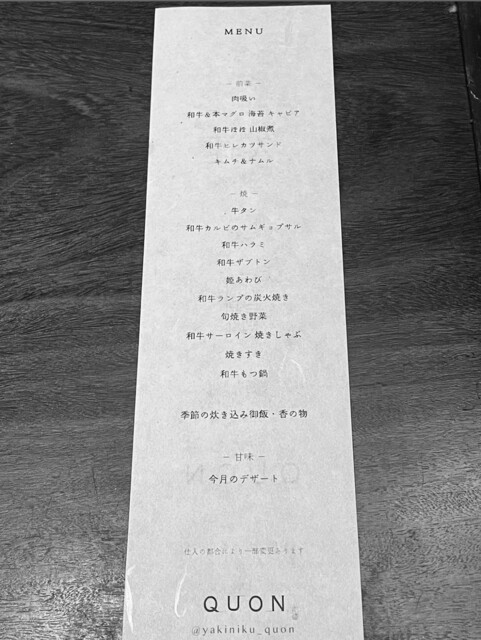 MENU
― 前菜 ―
肉吸い
和牛&本マグロ 海苔 キャビア
和牛ほほ 山椒煮
和牛ヒレカツサンド
キムチ&ナムル
― 焼 ―
牛タン
和牛カルビのサムギョプサル
和牛ハラミ
和牛ザブトン
姫あわび
和牛ランプの炭火焼き
旬焼き野菜
和牛サーロイン 焼きしゃぶ
焼きすき
和牛もつ鍋
季節の炊き込み御飯・香の物
― 甘味 ―
今月のデザート
仕入の都合により一部変更あります
QUON
@yakiniku_quon